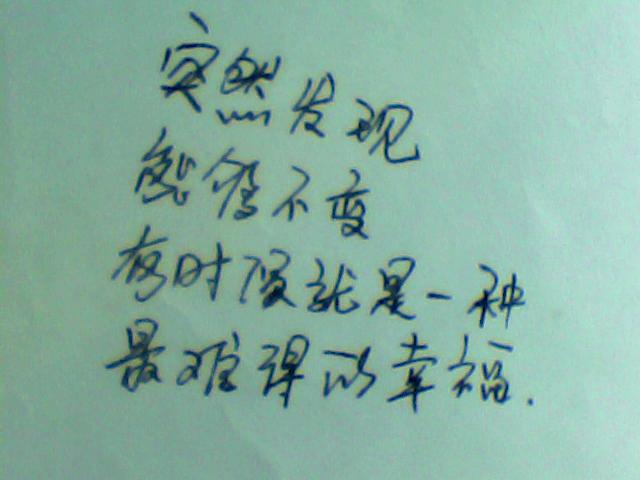 突然发现
能够不变
有时候就是一种
最难得的幸福.